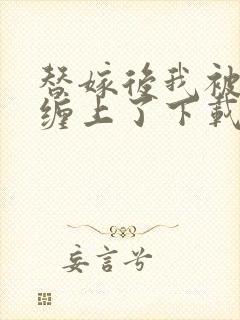 替嫁後我被
缠上了下載
妄言兮